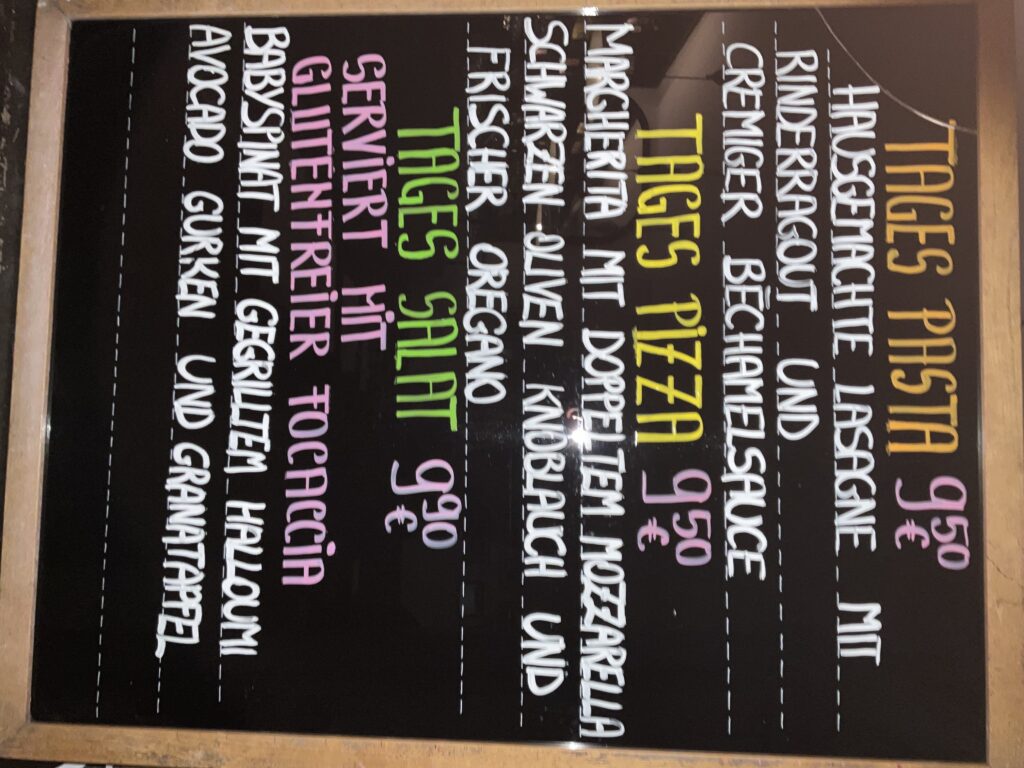 TAGES PASTA 9,50 €
HAUSGEMACHTE LASAGNE MIT
RINDERRAGOUT UND
CREMIGER BĒCHAMELSAUCE
TAGES PIZZA 9,50 €
MARGHERITA MIT DOPPELTEM MOZZARELLA
SCHWARZEN OLIVEN KNOBLAUCH UND
FRISCHER OREGANO
TAGES SALAT 9,90 €
SERVIERT MIT
GLUTENFREIER FOCACCIA
BABYSPINAT MIT GEGRILLTEM HALLOUMI
AVOCADO GURKEN UND GRANATAPFEL